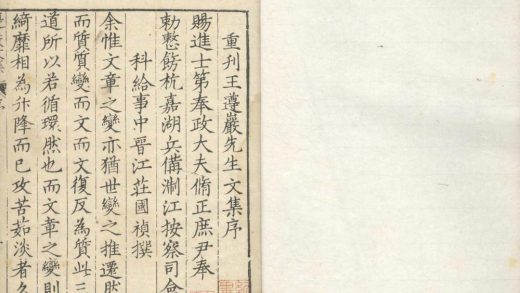 重刊王遵巖先生文集序
賜進士第奉政大夫脩正庶尹奉
勅整飭杭嘉湖兵備浙江按察司僉
科給事中晉江莊國禎撰
余惟文章之變亦猶世變之推遷然
而質質變而文而文復反為質此三
道所以若循環然也而文章之變則
綺靡相為升降而已攻苦茹淡者久